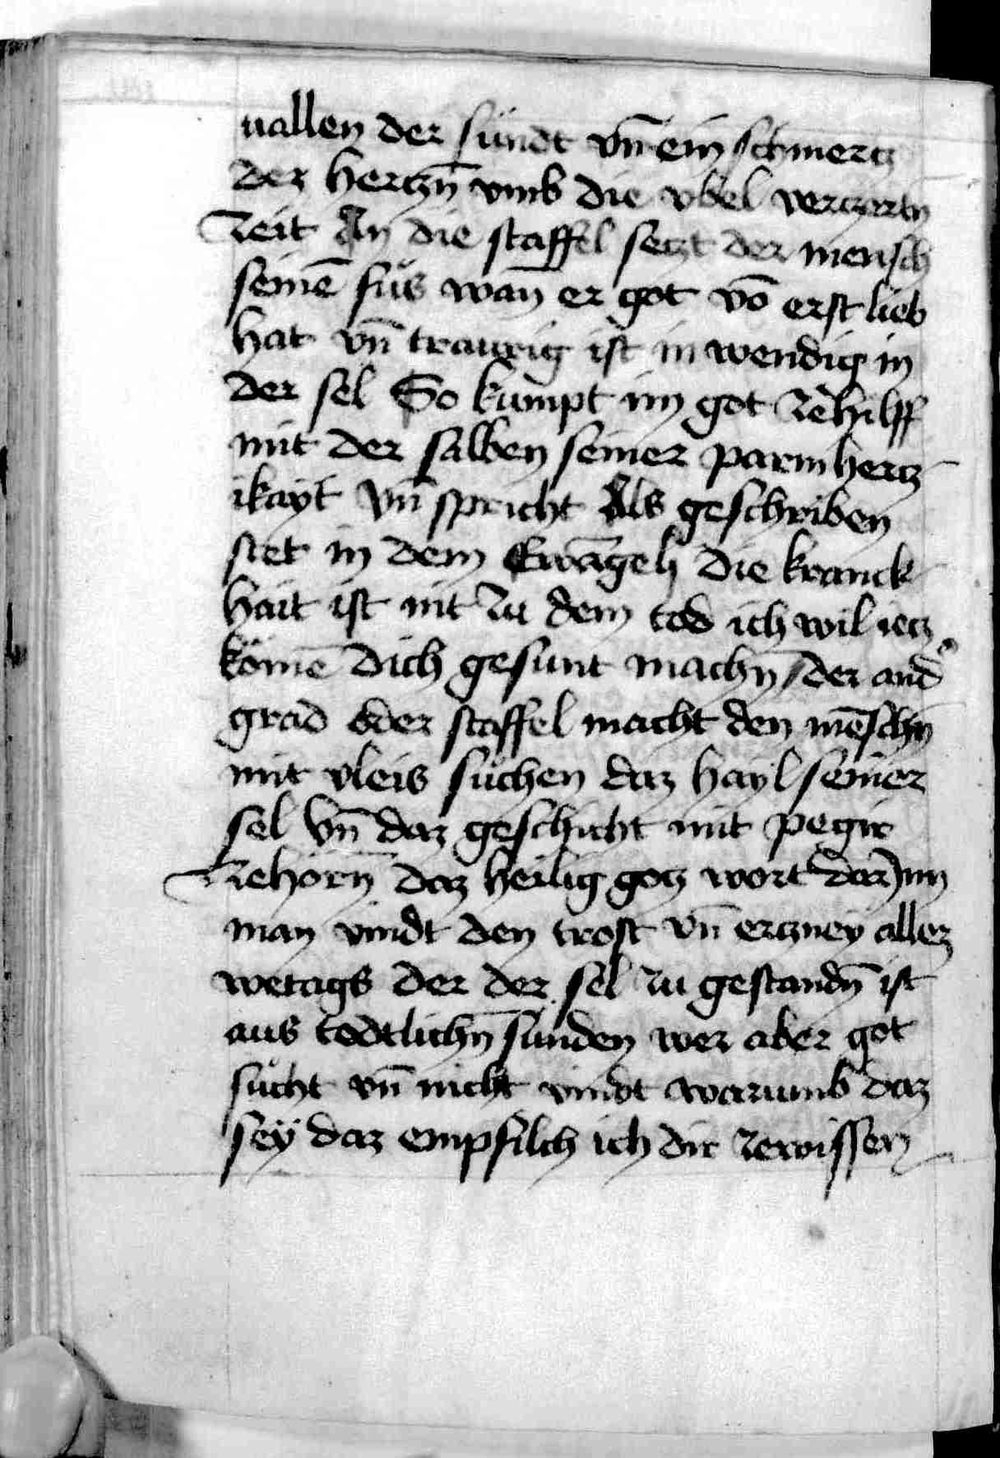 uallen der sündt vn̄ ein schmertz
dez hertzn̄ vmb die vbel verczertn
Zeit An die staffel setzt der mensch
seinē fůs wan̄ er got vō erst lieb
hat vn̄ traurig ist in wendig in
der sel So kumpt im got ze hilff
mit der salben seiner parmhertz
ikayt Vn̄ spricht Als geschriben
stet in dem Ewāgelj Die kranck
hait ist nit zu dem tod ich wil ietz
kömē Dich gesunt machn̄ der and̾
grad oder staffel macht den mēschn̄
mit vleis suchen daz hayl seiner
sel Vn̄ daz geschicht mit pegir
Zehörn̄ daz heilig gotz wort dar jnn
man vindt den trost vn̄ erczney allez
wetags der der sel zu gestandn̄ ist
aus todtlichn̄ sünden wer aber got
sůcht vn̄ nicht vindt warumb daz
sey daz empfilch ich dir zewissen